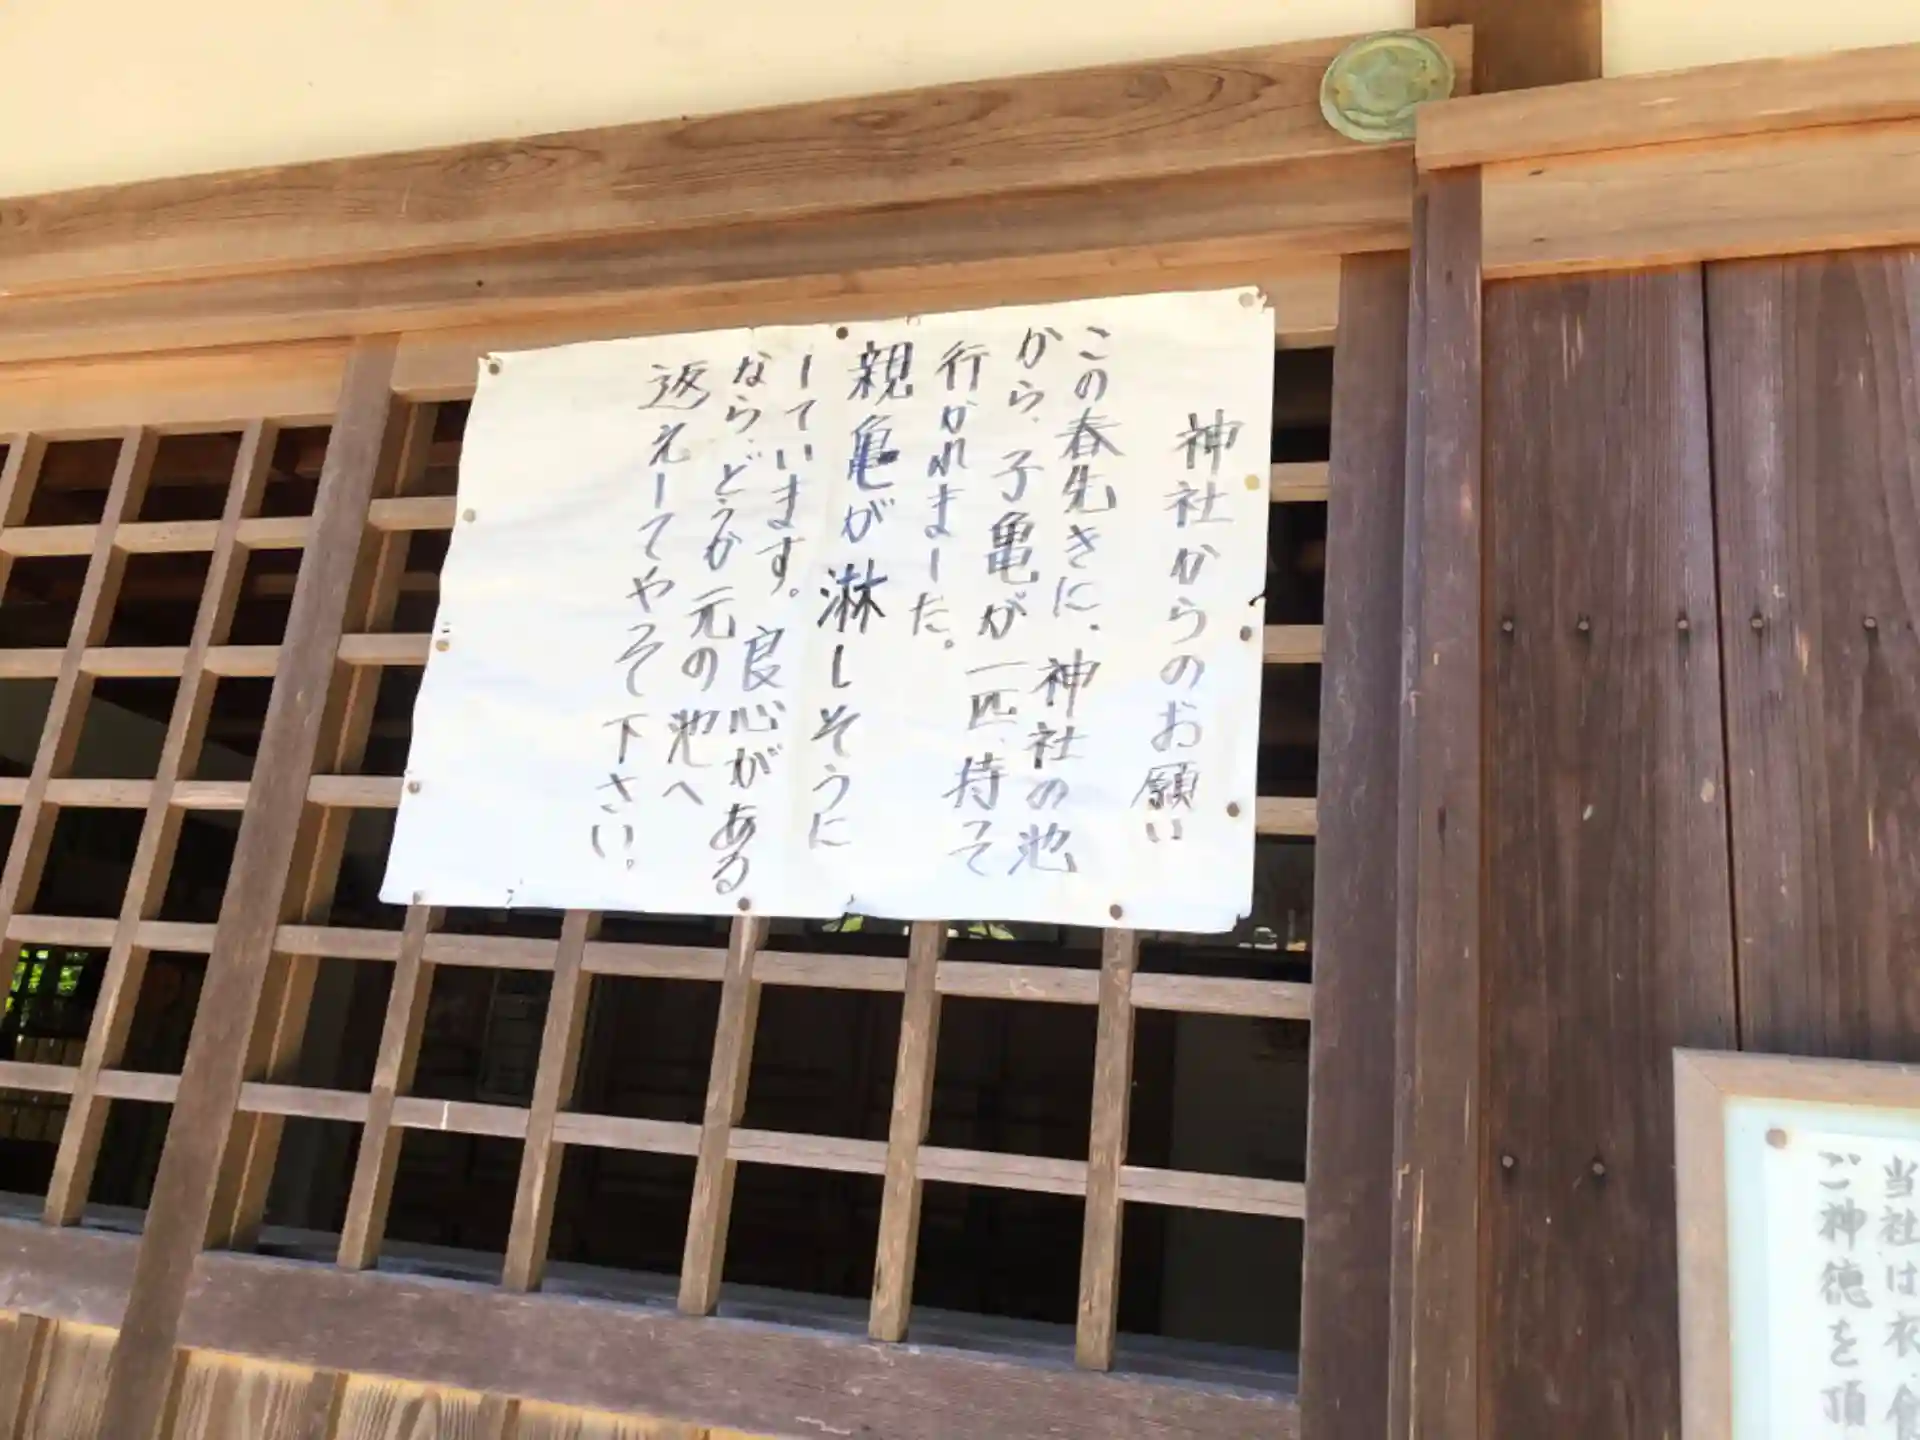 神社からのお願い
この春先きに、神社の池
から、子亀が一匹、持って
行かれました。
親亀が淋しそうに
しています。良心がある
なら、どうか元の池へ
返えしてやって下さい。
当社は衣食
ご神徳を頂